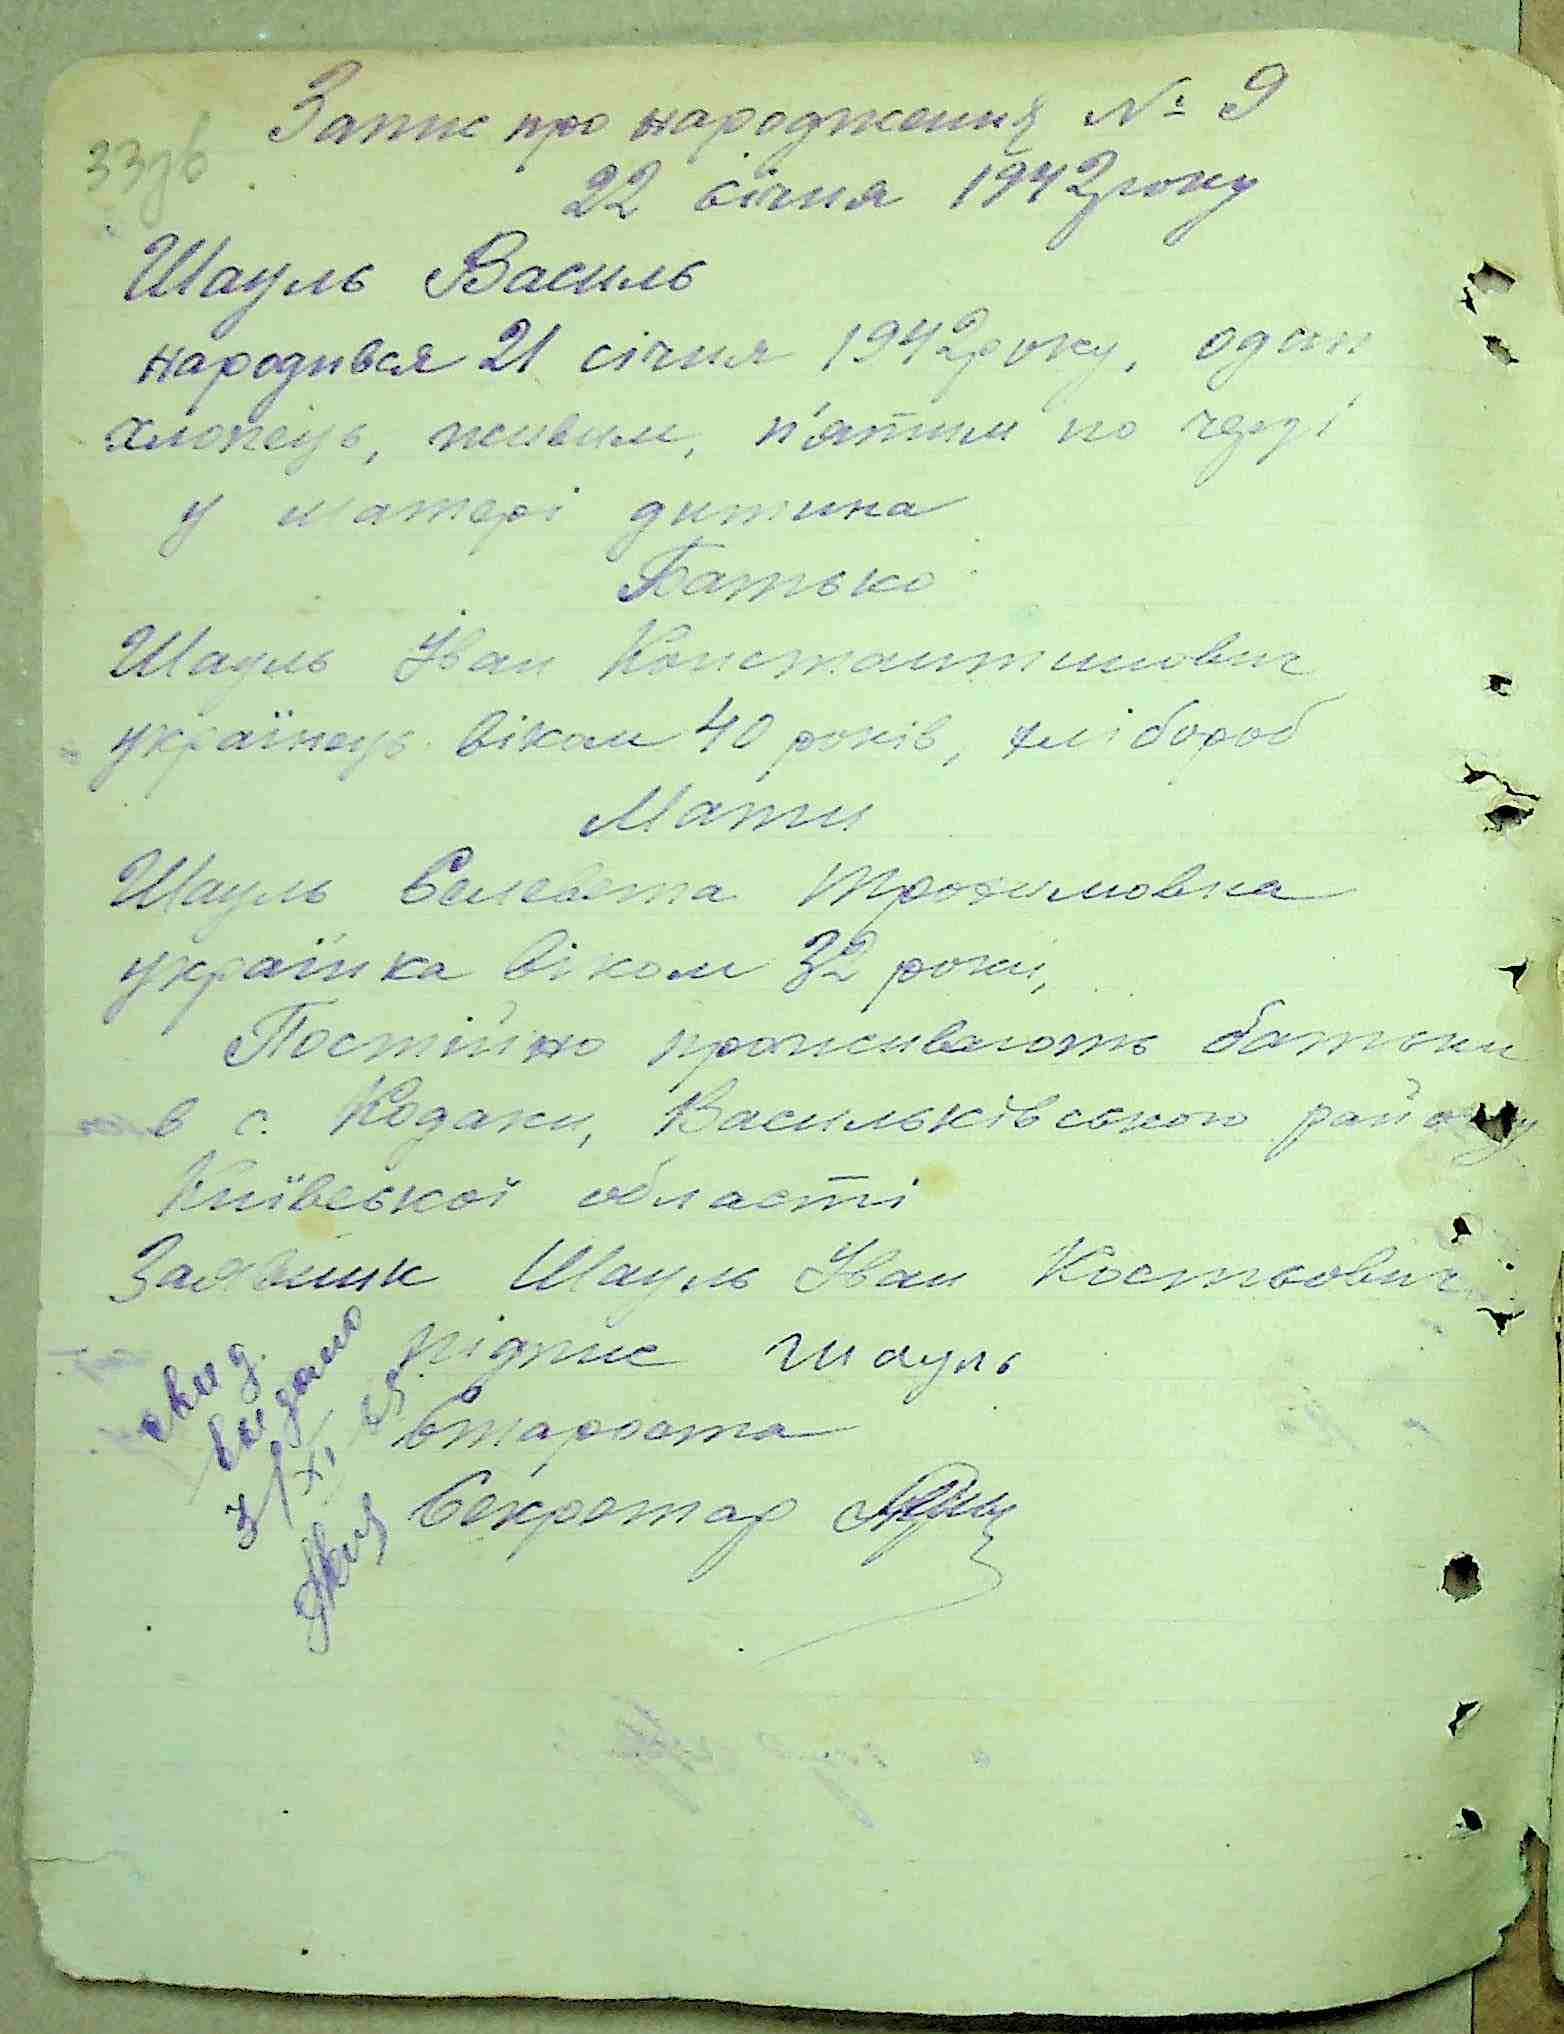 Запис про народження № 9
33зв
22 січня 1942 року
Шауль Василь
народився 21 січня 1942 року, один
хлопець, живим, п'ятим по черзі
у матері дитина
Батько
Шауль Іван Константинович
українець віком 40 років, хлібороб
Мати
Шауль Єлисвета Трохимовна
українка віком 32 роки,
Постійно проживають батьки
в с. Кодаки, Васильківського району
Київської області
Заявник Шауль Іван Костьович
Підпис Шауль
Староста
Секретар
свид.
видано
3/XI